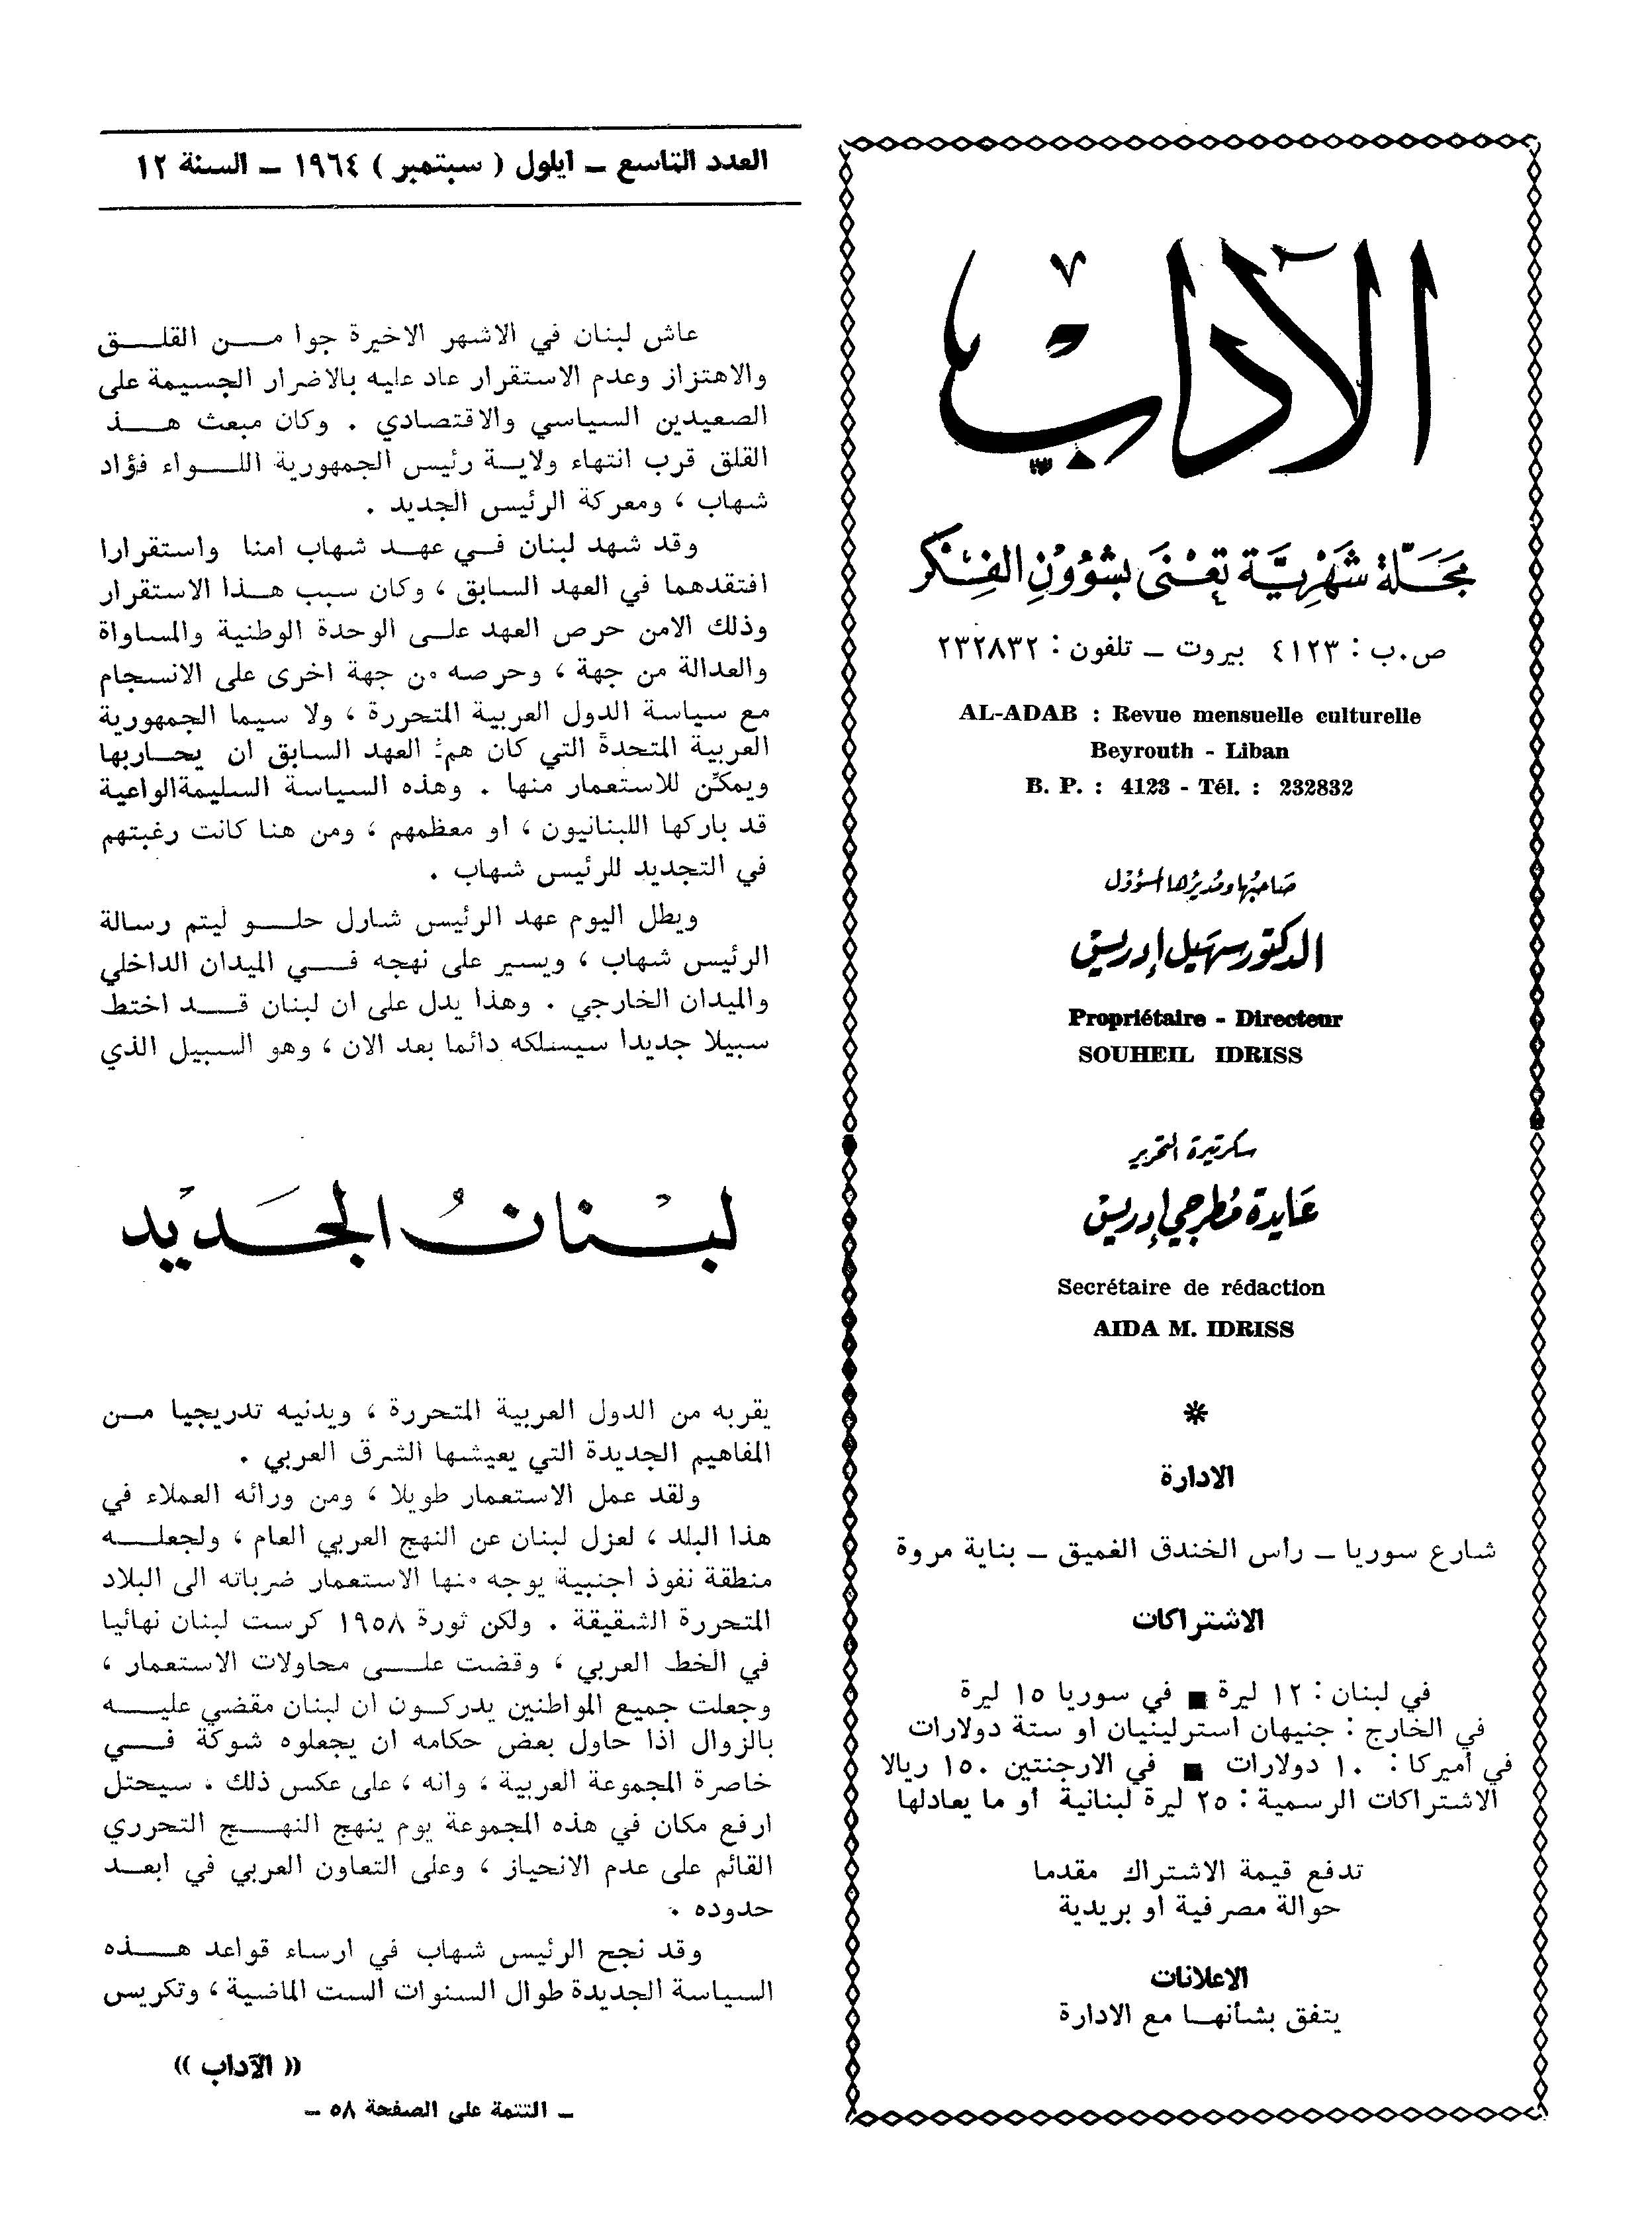 الآداب
مجلة شهرية تعنى بشؤون الفكر
ص.ب : ٤١٢٣ بيروت ـ تلفون : ٢٣٢٨٣٢
AL-ADAB : Revue mensuelle culturelle
Beyrouth - Liban
B. P. : 4123 - Tél. : 232832
صاحبها ومديرها المسؤول
الدكتور سهيل إدريس
Propriétaire - Directeur
SOUHEIL IDRISS
سكرتيرة التحرير
عايدة مطرجي إدريس
Secrétaire de rédaction
AIDA M. IDRISS
*
الادارة
شارع سوريا ـ رأس الخندق الغميق ـ بناية مروة
الاشتراكات
في لبنان : ١٢ ليرة ■ في سوريا ١٥ ليرة
في الخارج : جنيهان استرلينيان او ستة دولارات
في أميركا : ١٠ دولارات ■ في الارجنتين ١٥٠ ريالا
الاشتراكات الرسمية : ٢٥ ليرة لبنانية أو ما يعادلها
تدفع قيمة الاشتراك مقدما
حوالة مصرفية او بريدية
الاعلانات
يتفق بشأنها مع الادارة
العدد التاسع ـ ايلول ( سبتمبر ) ١٩٦٤ ـ السنة ١٢
عاش لبنان في الاشهر الاخيرة جوا من القلق
والاهتزاز وعدم الاستقرار عاد عليه بالاضرار الجسيمة على
الصعيدين السياسي والاقتصادي . وكان مبعث هذ
القلق قرب انتهاء ولاية رئيس الجمهورية اللواء فؤاد
شهاب ، ومعركة الرئيس الجديد .
وقد شهد لبنان في عهد شهاب امنا واستقرارا
افتقدهما في العهد السابق ، وكان سبب هذا الاستقرار
وذلك الامن حرص العهد على الوحدة الوطنية والمساواة
والعدالة من جهة ، وحرصه من جهة اخرى على الانسجام
مع سياسة الدول العربية المتحررة ، ولا سيما الجمهورية
العربية المتحدة التي كان همّ العهد السابق ان يحاربها
ويمكّن للاستعمار منها . وهذه السياسة السليمة الواعية
قد باركها اللبنانيون ، او معظمهم ، ومن هنا كانت رغبتهم
في التجديد للرئيس شهاب .
ويطل اليوم عهد الرئيس شارل حلو ليتم رسالة
الرئيس شهاب ، ويسير على نهجه في الميدان الداخلي
والميدان الخارجي . وهذا يدل على ان لبنان قد اختط
سبيلا جديدا سيسلكه دائما بعد الان ، وهو السبيل الذي
لبنان الجديد
يقربه من الدول العربية المتحررة ، ويدنيه تدريجيا من
المفاهيم الجديدة التي يعيشها الشرق العربي .
ولقد عمل الاستعمار طويلا ، ومن ورائه العملاء في
هذا البلد ، لعزل لبنان عن النهج العربي العام ، ولجعله
منطقة نفوذ اجنبية يوجه منها الاستعمار ضرباته الى البلاد
المتحررة الشقيقة . ولكن ثورة ١٩٥٨ كرست لبنان نهائيا
في الخط العربي ، وقضت على محاولات الاستعمار ،
وجعلت جميع المواطنين يدركون ان لبنان مقضي عليه
بالزوال اذا حاول بعض حكامه ان يجعلوه شوكة في
خاصرة المجموعة العربية ، وانه ، على عكس ذلك ، سيحتل
ارفع مكان في هذه المجموعة يوم ينهج النهج التحرري
القائم على عدم الانحياز ، وعلى التعاون العربي في ابعد
حدوده .
وقد نجح الرئيس شهاب في ارساء قواعد هذه
السياسة الجديدة طوال السنوات الست الماضية ، وتكريس
« الآداب »
ـ التتمة على الصفحة ٥٨ ـ